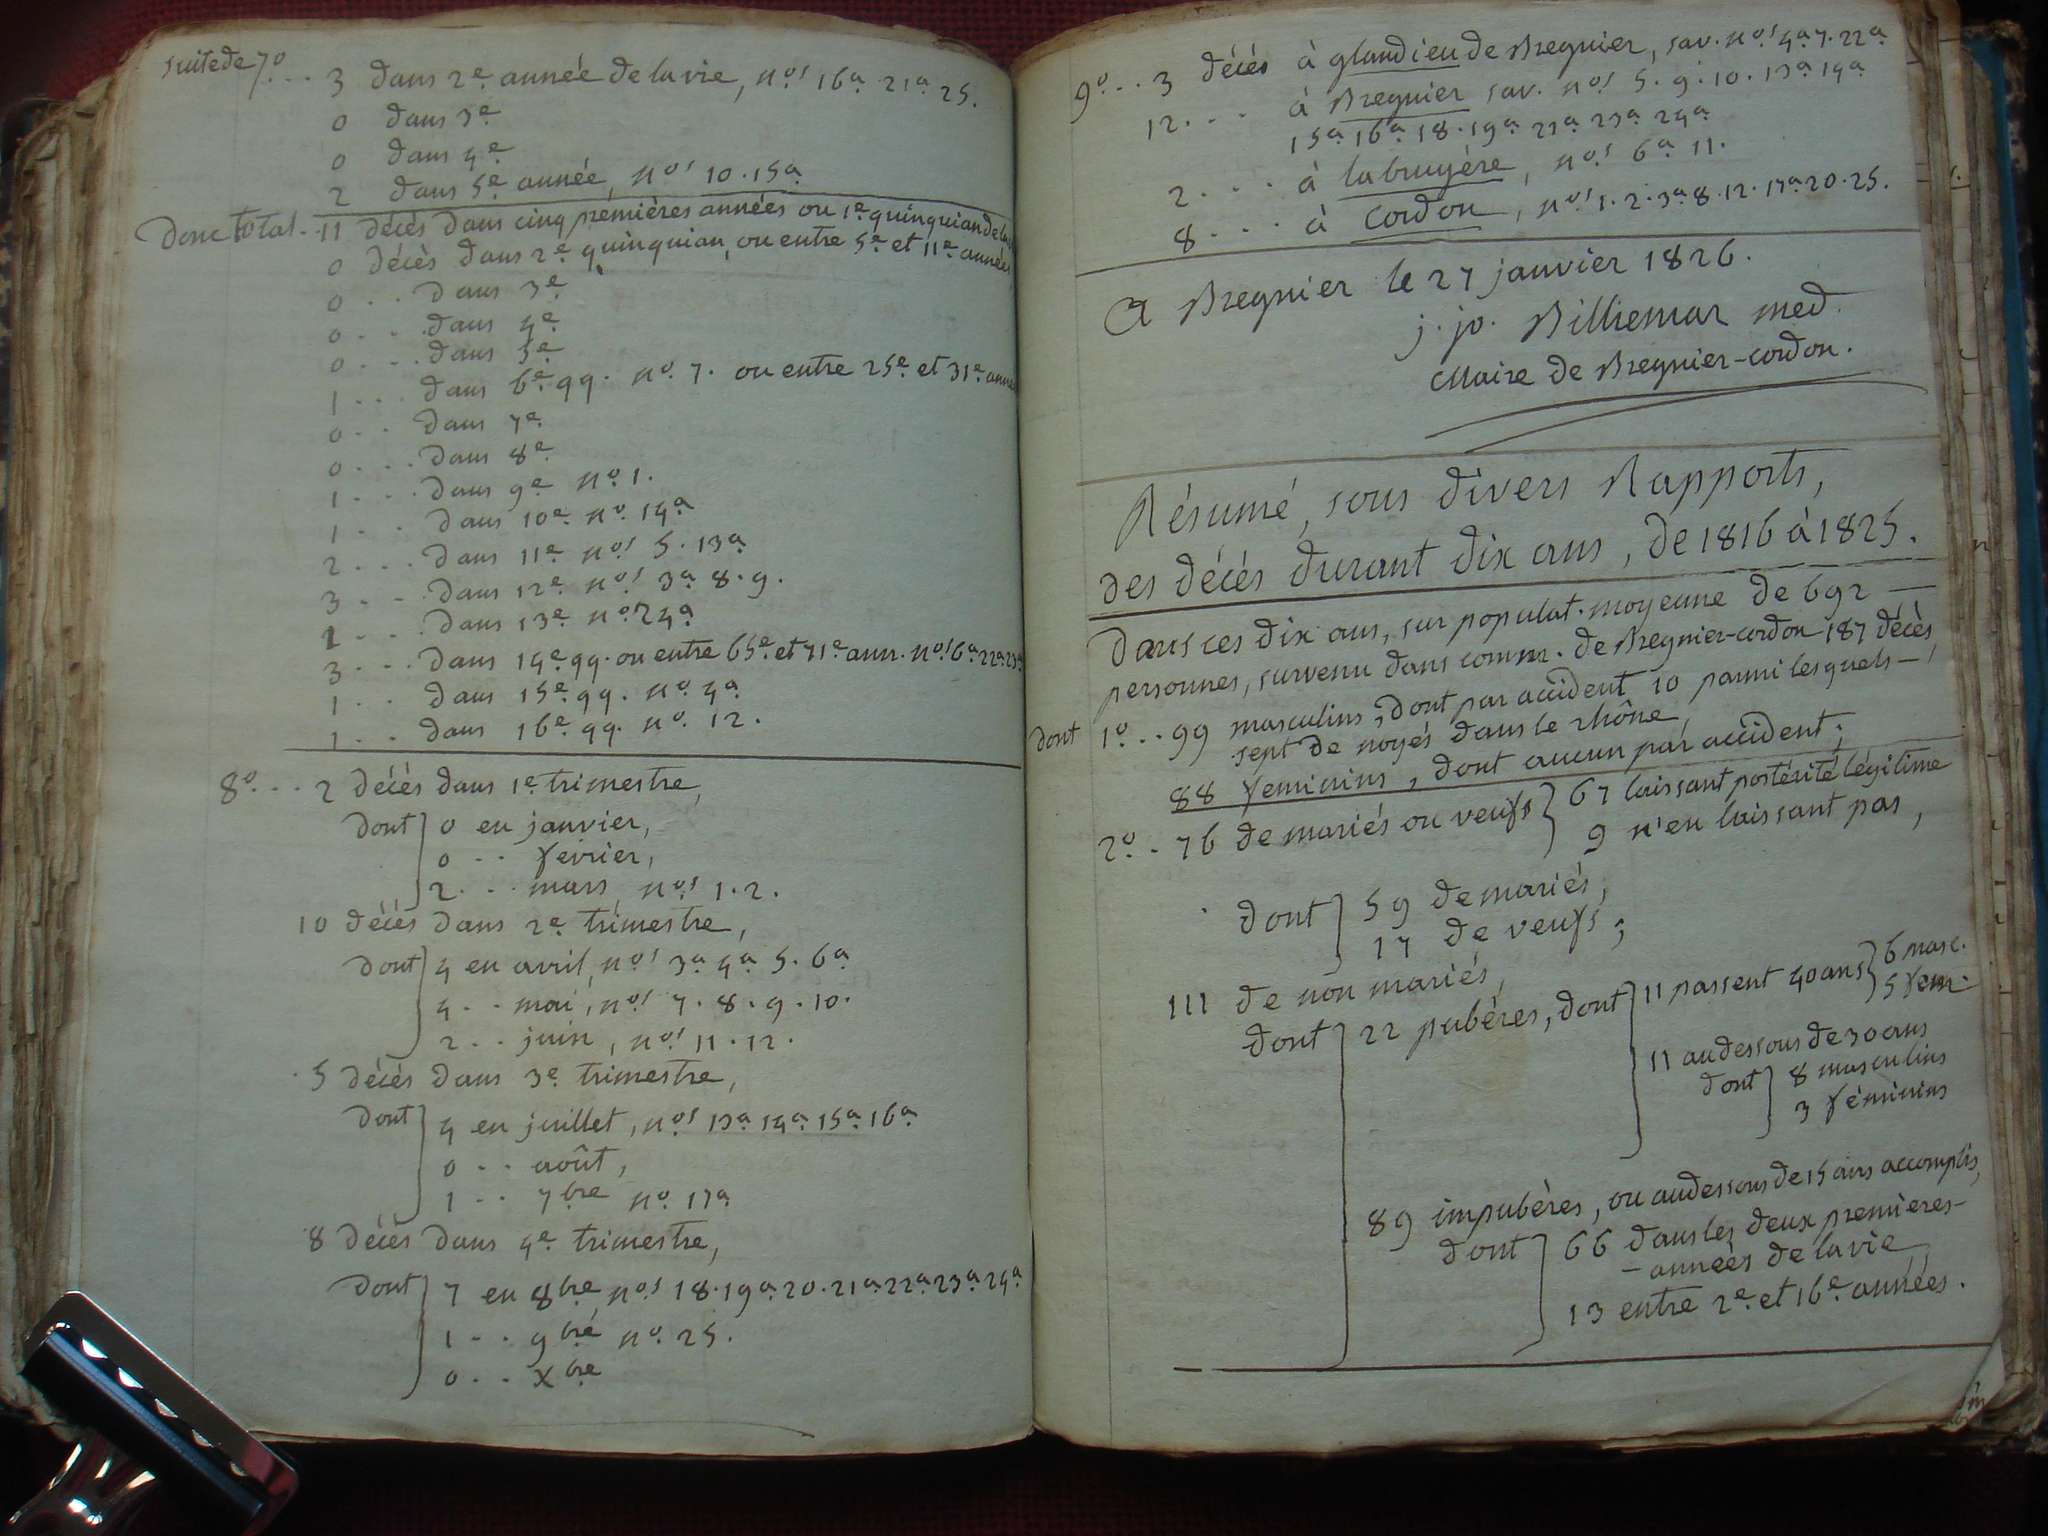 suite de 7º... 3 dans 2e. année de la vie, nos. 16a. 21a. 25.
0 dans 3e.
0 dans 4e.
2 dans 5e. année, nos 10. 15a.
Donc total.. 11 décès dans cinq premières années ou 1e. quinquian de la vie
0 décès dans 2e. quinquian, ou entre 5e. et 11e. années
0 .. dans 3e.
0 .. dans 4e.
0 ... dans 5e.
1 ... dans 6e. qq. no. 7. ou entre 25e. et 31e. année
0 .. dans 7e.
0 ... dans 8e.
1 ... dans 9e. no. 1.
1 .. dans 10e. no. 14a
2 ... dans 11e. nos 5. 13a.
3 .. dans 12e. nos 3a. 8. 9.
1 ... dans 13e. no. 24a
3 ... dans 14e. qq. ou entre 65e. et 71e. ann. nos 6a. 22a. 23a
1 .. dans 15e. qq. no. 4a
1 .. dans 16e. qq. no. 12.
8º... 2 décès dans 1e. trimestre,
dont 0 en janvier,
0 .. fevrier,
2 ... mars, nos. 1. 2.
10 décès dans 2e. trimestre,
dont 4 en avril, nos. 3a. 4a. 5. 6a.
4 .. mai, nos. 7. 8. 9. 10.
2 .. juin, nos. 11. 12.
5 décès dans 3e. trimestre,
dont 4 en juillet, nos. 13a. 14a. 15a. 16a.
0 .. août,
1 .. 7bre no. 17a
8 décès dans 4e. trimestre,
dont 7 en 8bre, nos. 18. 19a. 20. 21a. 22a. 23a. 24a
1 .. 9bre no. 25.
0 .. Xbre
9º... 3 décès à glandieu de Bregnier, sav. nos. 4a. 7. 22a.
12. .. à Bregnier sav. nos 5. 9. 10. 13a. 14a.
15a. 16a. 18. 19a. 21a. 23a. 24a.
2 ... à la bruyère, nos. 6a. 11.
8 ... à Cordon, nos. 1. 2. 3a. 8. 12. 17a. 20. 25.
A Bregnier le 27 janvier 1826.
j. jo. Billiemar med.
Maire de Bregnier-cordon.
Résumé, sous divers Rapports,
des décès durant dix ans, de 1816 à 1825.
Dans ces dix ans, sur populat. moyenne de 692 —
personnes, survenu dans comm. de Bregnier-cordon 187 décès,
dont 1º.. 99 masculins, dont par accident 10 parmi lesquels —
sept de noyés dans le rhône,
88 feminins, dont aucun par accident;
2º.. 76 de mariés ou veufs } 67 laissant postérité légitime
9 n'en laissant pas,
dont } 59 de mariés,
17 de veufs;
111 de non mariés,
dont 22 pubères, dont 11 passent 40 ans } 6 masc.
5 fem.
11 au dessous de 30 ans
dont 8 masculins
3 féminins
89 impubères, ou au dessous de 15 ans accomplis,
dont 66 dans les deux premieres —
— années de la vie,
13 entre 2e. et 16e. années.